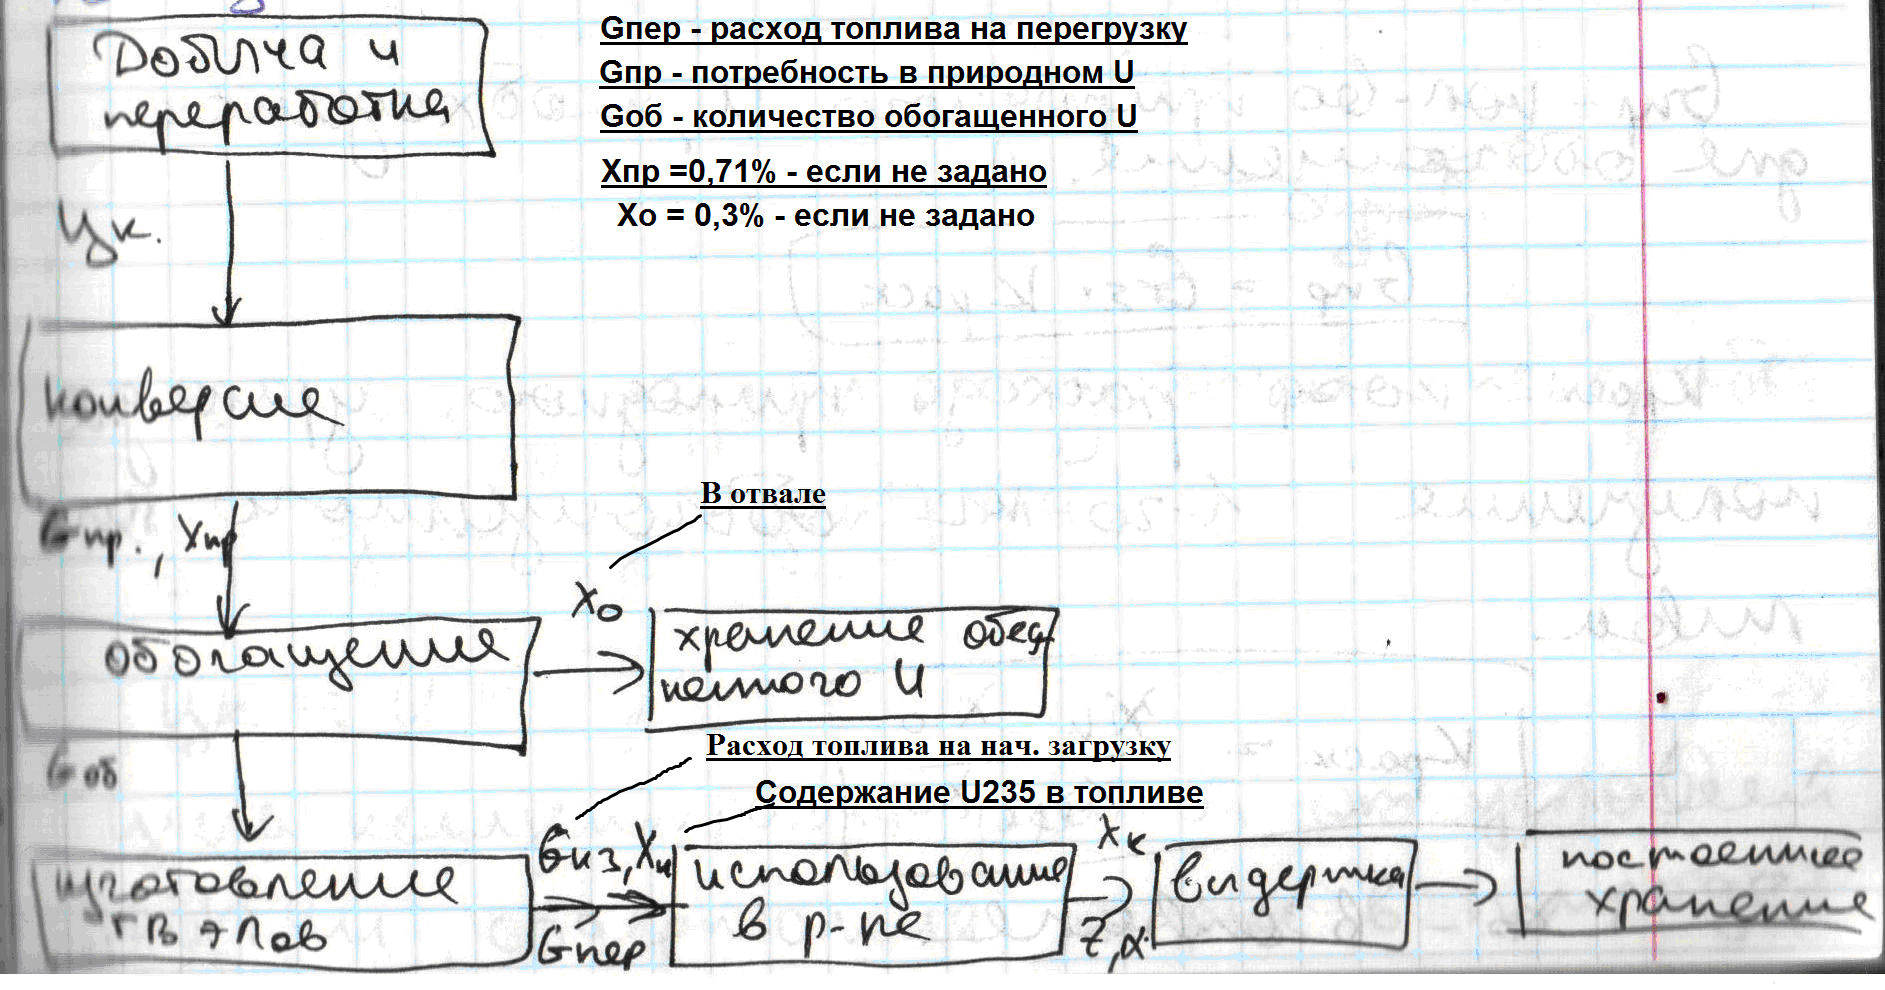 Добыча и
переработка
Gпер - расход топлива на перегрузку
Gпр - потребность в природном U
Gоб - количество обогащенного U
Хпр =0,71% - если не задано
Хо = 0,3% - если не задано
Цк.
конверсия
В отвале
Gпр., Хпр
Хо
обогащение
хранение обед
ненного U
Gоб
Расход топлива на нач. загрузку
Содержание U235 в топливе
Gнз, Хн
Хк
изготовление
твэлов
использование
в р-ре
выдержка
постоянное
хранение
Gпер
Z, α